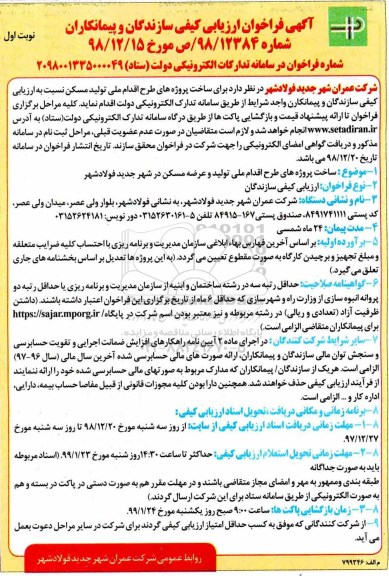 آگهی فراخوان ارزیابی کیفی سازندگان و پیمانکاران
شماره ۹۸/۱۲۳۸۴/ص مورخ ۹۸/۱۲/۱۵
نوبت اول
شماره فراخوان در سامانه تدارکات الکترونیکی دولت (ستاد) ۲۰۹۸۰۰۱۳۳۵۰۰۰۰۴۹
شرکت عمران شهر جدید فولادشهر در نظر دارد برای ساخت پروژه های طرح اقدام ملی تولید مسکن نسبت به ارزیابی
کیفی سازندگان و پیمانکارن واجد شرایط از طریق سامانه تدارک الکترونیکی دولت اقدام نماید. کلیه مراحل برگزاری
فراخوان تا ارائه پیشنهاد قیمت و بازگشایی پاکت ها از طریق درگاه سامانه تدارک الکترونیکی دولت(ستاد) به آدرس
www.setadiran.ir انجام خواهد شد و لازم است متقاضیان در صورت عدم عضویت قبلی، مراحل ثبت نام در سامانه
مذکور و دریافت گواهی امضای الکترونیکی را جهت شرکت در فراخوان محقق سازند. تاریخ انتشار فراخوان در سامانه
تاریخ ۹۸/۱۲/۲۰ می باشد.
۱–موضوع : ساخت پروژه های طرح اقدام ملی تولید و عرضه مسکن در شهر جدید فولادشهر
۲–نوع فراخوان: ارزیابی کیفی سازندگان
۳–نام و نشانی دستگاه: شرکت عمران شهر جدید فولادشهر، به نشانی فولادشهر، بلوار ولی عصر، میدان ولی عصر،
کد پستی ۸۴۹۱۷۴۱۱۱۱، صندوق پستی ۱۶۷–۸۴۹۱۵ تلفن ۵–۰۳۱۵۲۶۳۰۱۶۱ دور نویس: ۰۳۱۵۲۶۲۴۱۸۱
۴– مدت پیمان: ۲۴ ماه شمسی
۵– برآورد اولیه: بر اساس آخرین فهارس بهاء ابلاغی سازمان مدیریت و برنامه ریزی با احتساب کلیه ضرایب متعلقه
و مبلغ تجهیز و برچیدن کارگاه به صورت مقطوع تعیین می گردد. (به این پروژه ها تعدیل بر اساس بخشنامه های جاری
تعلق می گیرد.)
۶–گواهینامه صلاحیت: حداقل رتبه سه در رشته ساختمان و ابنیه از سازمان مدیریت و برنامه ریزی یا حداقل رتبه دو
پروانه انبوه سازی از وزارت راه و شهرسازی که حداقل ۶ ماه از تاریخ برگزاری این فراخوان اعتبار داشته باشند. (داشتن
ظرفیت آزاد (تعدادی و ریالی) در رشته مربوطه و نیز معتبر بودن اسم شرکت در پایگاه https://sajar.mporg.ir/
برای پیمانکاران متقاضی الزامی است.)
۷–سایر شرایط شرکت کنندگان : در اجرای ماده ۲ آیین نامه راهکارهای افزایش ضمانت اجرایی و تقویت حسابرسی
و سنجش توان مالی سازندگان و پیمانکاران، ارائه صورت های مالی حسابرسی شده آخرین سال مالی (سال ۹۶–۹۷)
الزامی است. هریک از سازندگان/ پیمانکاران که مدارک مربوط به صورتهای مالی حسابرسی شده خود را ارائه ننمایند
از فرآیند ارزیابی کیفی حذف خواهند شد. همچنین دارا بودن کلیه مجوزات قانونی از قبیل مفاصا حساب بیمه، دارایی،
اداره کار و ... الزامی است.
۸–برنامه زمانی و مکانی دریافت، تحویل اسناد ارزیابی کیفی:
۸–۱– مهلت زمانی دریافت اسناد ارزیابی کیفی از سایت: از روز سه شنبه مورخ ۹۸/۱۲/۲۰ تا روز سه شنبه مورخ
۹۷/۱۲/۲۷.
۸–۲–مهلت زمانی تحویل استعلام ارزیابی کیفی: حداکثر تا ساعت ۱۴:۳۰ روز شنبه مورخ ۹۹/۱/۲۳. (اسناد مربوطه
باید به صورت جداگانه
طبقه بندی وممهور به مهر و امضای مجاز متقاضی باشند و در مهلت مقرر هم به صورت دستی در پاکت در بسته و هم
به صورت الکترونیکی از طریق سامانه ستاد برای این شرکت ارسال گردند.)
۸–۳– زمان بازگشایی پاکت ها: ساعت ۹:۰۰ صبح روز یکشنبه مورخ ۹۹/۱/۲۴.
۹–از شرکت کنندگانی که موفق به کسب حداقل امتیاز ارزیابی کیفی گردند برای شرکت در سایر مراحل دعوت بعمل
می آید.
م الف: ۷۹۹۳۴۶
روابط عمومی شرکت عمران شهر جدید فولادشهر